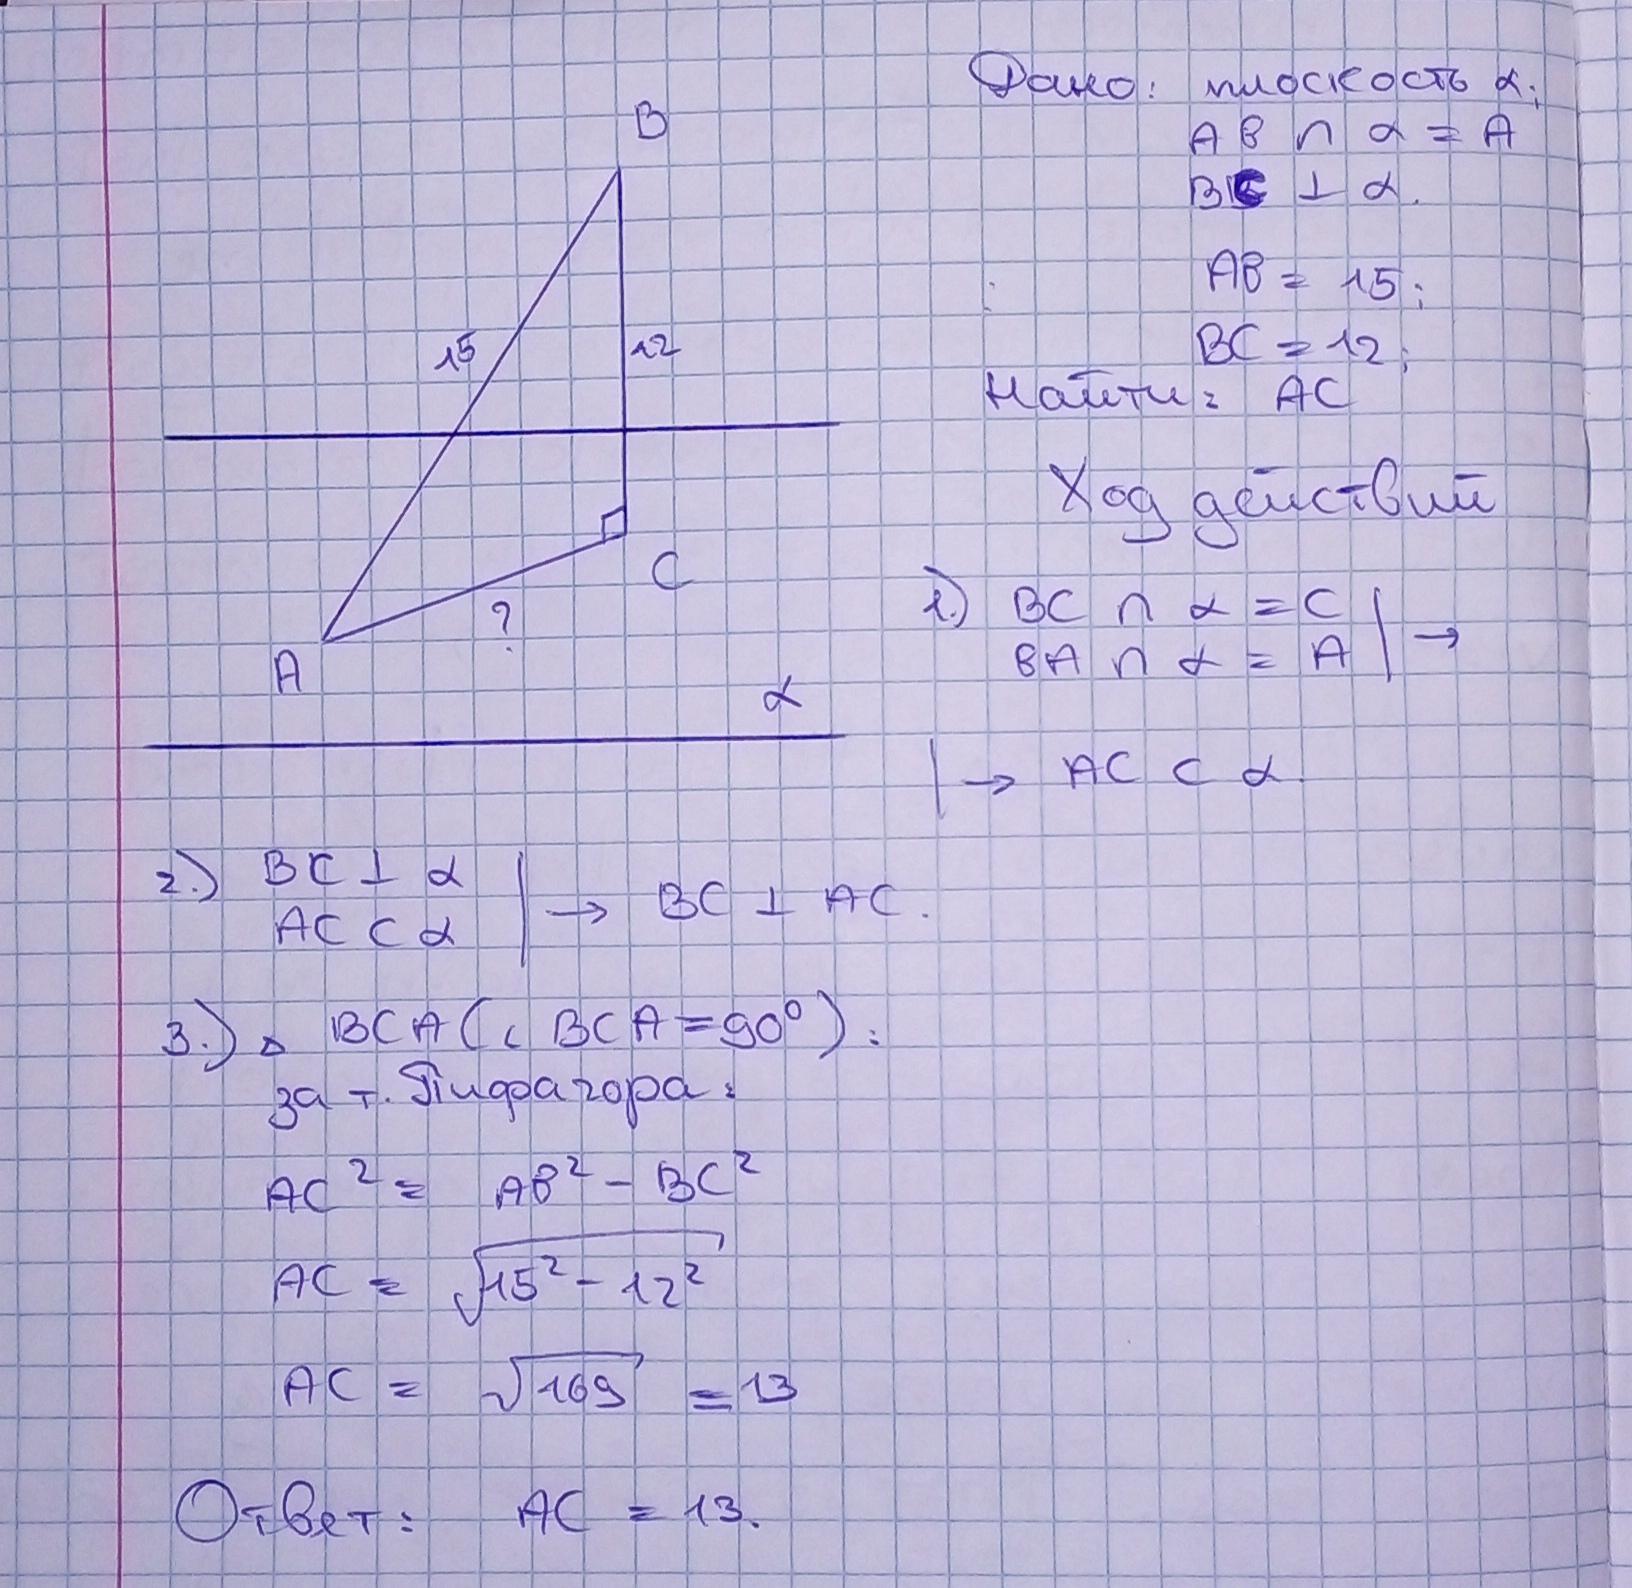 Дано: плоскость α;
AB ∩ α = A
BC ⊥ α.
AB = 15;
BC = 12;
Найти: AC
B
15
12
C
?
A
α
Ход действий
1.) BC ∩ α = C | →
BA ∩ α = A
| → AC ⊂ α.
2.) BC ⊥ α | → BC ⊥ AC.
AC ⊂ α
3.) △ BCA (∠ BCA = 90°):
за т. Пифагора:
AC² = AB² - BC²
AC = √15² - 12²
AC = √169 = 13
Ответ: AC = 13.